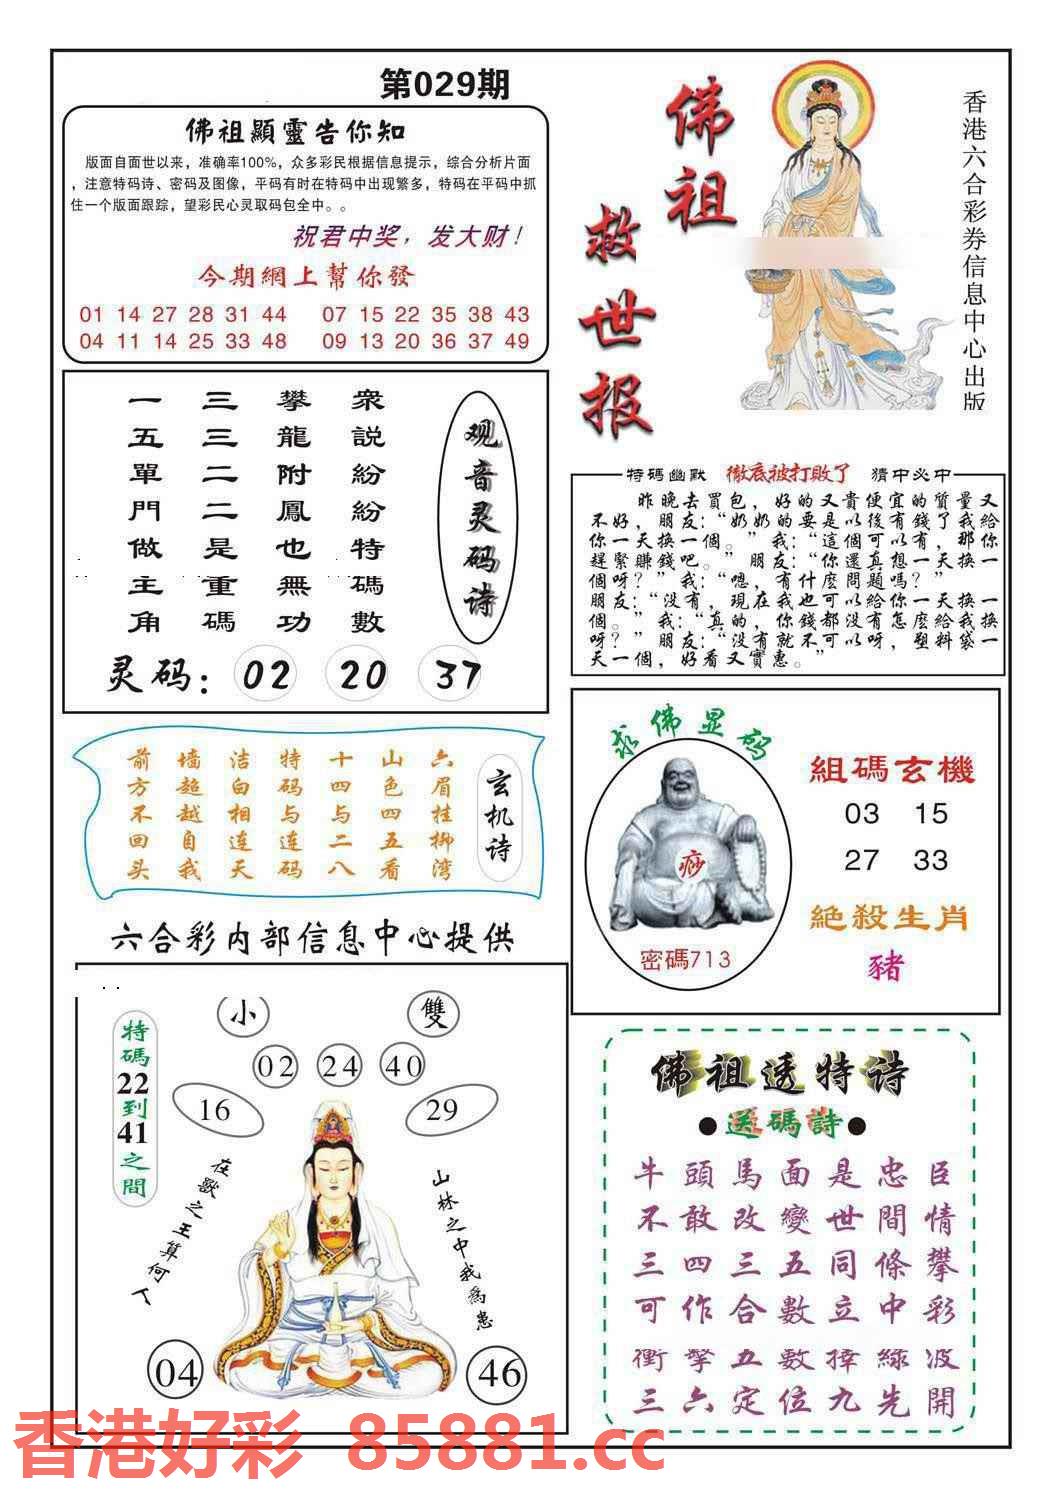 第029期
佛祖顯靈告你知
版面自面世以来，准确率100%，众多彩民根据信息提示，综合分析片面
，注意特码诗、密码及图像，平码有时在特码中出现繁多，特码在平码中抓
住一个版面跟踪，望彩民心灵取码包全中。。
祝君中奖，发大财！
今期網上幫你發
01 14 27 28 31 44 07 15 22 35 38 43
04 11 14 25 33 48 09 13 20 36 37 49
佛祖
救世报
香港六合彩券信息中心出版
观音灵码诗
衆説紛紛特碼數
攀龍附鳳也無功
三三二二是重碼
一五單門做主角
灵码：02 20 37
特碼幽默 徹底被打敗了 猜中必中
昨晚去買包，好的又貴便宜的質量又
不好，朋友：“奶奶的要是以後有錢了我給
你一天换一個。”我：“這個可以有，那你
趕緊賺錢吧。”朋友：“你還真想一天换一
個呀？”我：“嗯，有什麽問題嗎？”
朋友：“没有，現在我也可以給你一天换一
個。”我：“真的，你錢都没有怎麽給我换
呀？”朋友：“没有就不可以呀，塑料袋一
天一個，好看又實惠。”
玄机诗
六眉挂柳湾
山色四五看
十四与二八
特码与连码
洁白相连天
墙超越自我
前方不回头
求佛显码
痧
密碼713
組碼玄機
03 15
27 33
絶殺生肖
豬
六合彩内部信息中心提供
小 雙
02 24 40
16 29
特碼22到41之間
在獸之王算何人
山林之中我爲患
04 46
佛祖透特诗
●送碼詩●
牛頭馬面是忠臣
不敢改變世間情
三四三五同條攀
可作合數立中彩
衝擊五數擇緑波
三六定位九先開
香港好彩 85881.cc